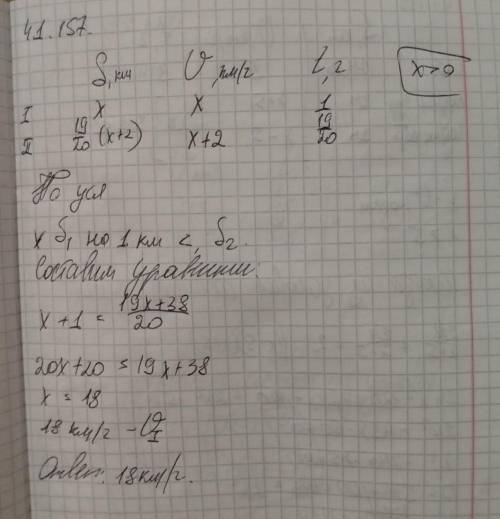 41.157.
S, км V, км/г t, г x>0
I x x 1
II 19/20 (x+2) x+2 19/20
По усл
x S₁ на 1 км <, S₂.
Составим уравнение:
x+1 = 19x+38/20
20x+20 = 19x+38
x = 18
18 км/г - V I
Ответ: 18 км/г.